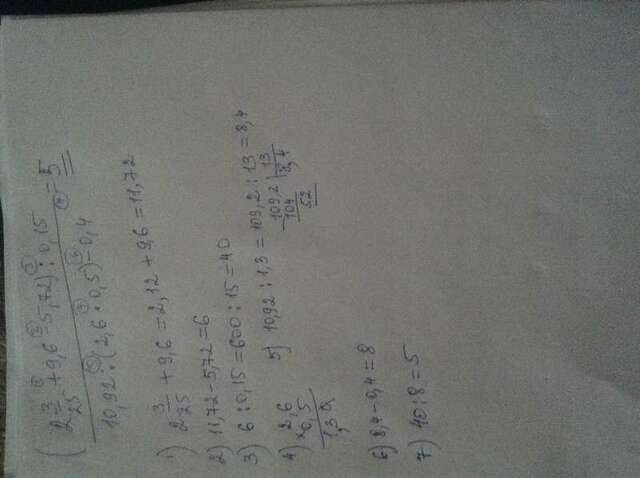 (2 3/25 + 9,6 - 5,72) : 0,15 = 5
10,92 : (2,6 · 0,5) - 0,4
1) 2 3/25 + 9,6 = 2,12 + 9,6 = 11,72
2) 11,72 - 5,72 = 6
3) 6 : 0,15 = 600 : 15 = 40
4) × 2,6
0,5
1,30
5) 10,92 : 1,3 = 109,2 : 13 = 8,4
109,2 | 13
104 8,4
52
6) 8,4 - 0,4 = 8
7) 40 : 8 = 5